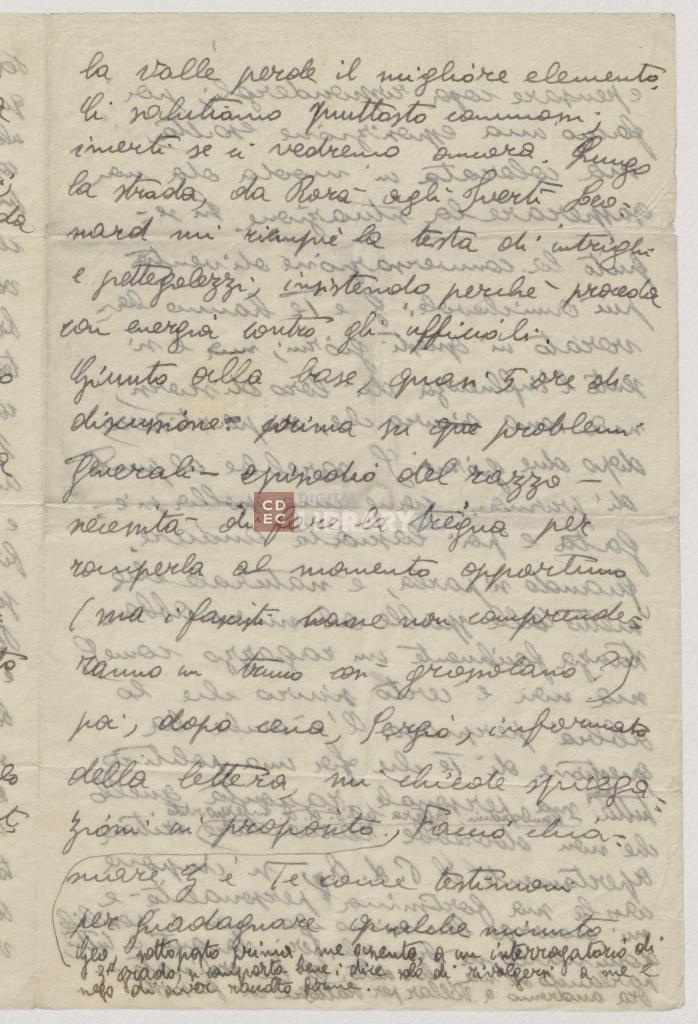 la valle perde il migliore elemento.
Ci salutiamo piuttosto commossi,
incerti se ci vedremo ancora. Lungo
la strada, da Rorà agli Iverti Leo-
nard mi riempie la testa di intrighi
e pettegolezzi, insistendo perchè proceda
con energia contro gli "ufficiali".
Giunto alla base, quasi 5 ore di
discussione: prima su que problemi
generali - episodio del razzo -
necessità di fare la tregua per
romperla al momento opportuno
(ma i fascisti non comprende-
ranno un trucco così grossolano?)
poi, dopo cena, Sergio, informato
della lettera, mi chiede spiega-
zioni in proposito. Faccio chia-
mare G e Te come testimoni
per guadagnare qualche minuto
Geo, sottoposto prima, me assente, a un interrogatorio di
3° grado, si comporta bene: dice solo di rivolgersi a me e
nega di aver
CDEC DIGITAL LIBRARY